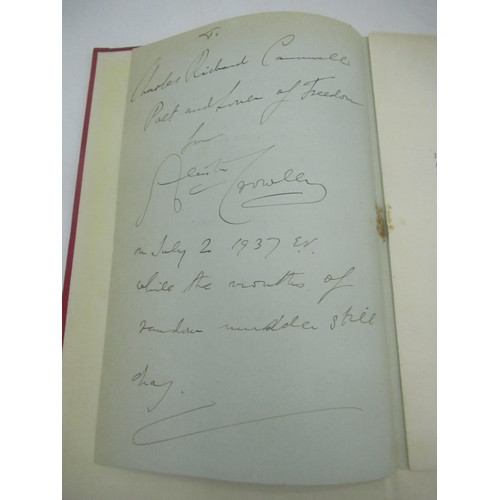 To
Charles Richard Cammell
Poet and Lover of Freedom
from
Aleister Crowley
on July 2 1937 E.V.
while the months of
random murder still